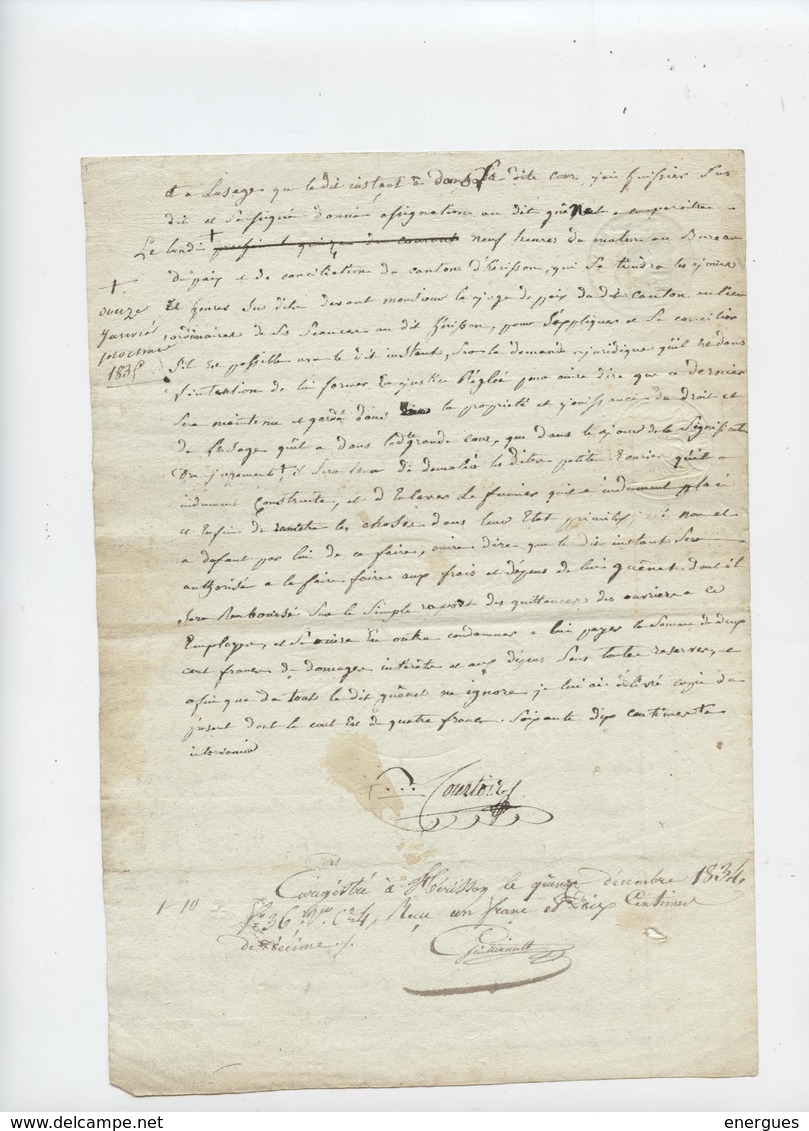 et a lusage que le dit instant a dans la dite cour, j'ai huissier sus
dit et soussigné donné assignation au dit guênet a comparaitre
Le lundi † prochain quinze du courant neuf heures du matin au Bureau
de paix et de conciliation du canton d'hérisson, qui se tendra les jours
†
douze
janvié
prochain
1835
et heures sus dite devant monsieur le juge de paix du dit canton au lieu
ordinaire de ses seances au dit hérisson, pour s'expliquer et se concilier
s'il est possible avec le dit instant, sur la demande juridique qu'il est dans
l'intention de lui former en justice Réglée pour ouire dire que ce dernier
sera maintenu et gardé dans la propriété et jouissance du droit et
de l'usage qu'il a dans lad. grande cour, que dans le jour de la signification
du jugement il sera tenu de demolir les dites petite Ecurier qu'il a
indument construite, et d'Enlever le fumier qu'il a indument placé
et Enfin de remettre les choses dans leur Etat primitif, si non et
a defaut par lui de ce faire, ouire dire que le dit instant sera
authorisé a le faire faire aux frais et dépens de lui guênet dont il
sera Remboursé sur le simple raport des quittances des ouvriers a ce
Employe, et s'ouire En outre condamner a lui payer la somme de deux
cent francs de domages intérêts et aux dépens sous toutes reserves, et
afin que du tout le dit guênet ne ignore je lui ai délivré copie du
présent dont le cout est de quatre francs soixante dix centimes
Courtois
Enregistré à Hérisson le quinze décembre 1834,
1-10
f° 36 v° c° 4, Reçu un franc et dix Centimes
de décime